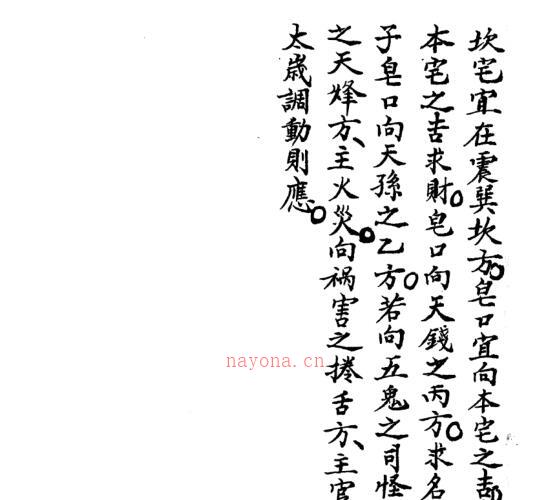 坎宅宜在震巽坎方。皂口宜向本宅之吉
本宅之吉求財。皂口向天錢之丙方。求名
子皂口向天孫之乙方。若向五鬼之司怪
之天烽方、主火災。向禍害之捲舌方、主官
太歲調動則應。
nayona.cn